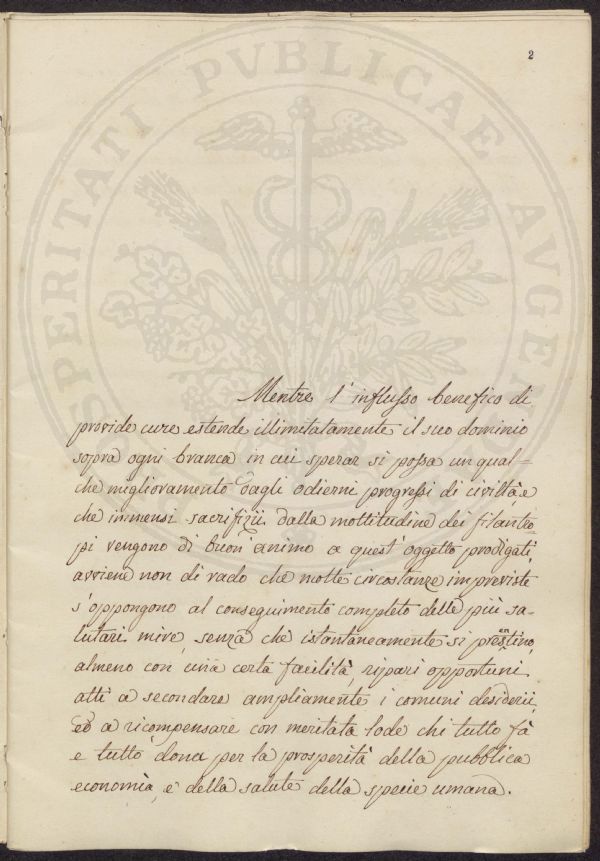 2
PROSPERITATI PVBLICAE AVGEN
Mentre l'influsso benefico di
provide cure estende illimitatamente il suo dominio
sopra ogni branca in cui sperar si possa un qual-
che miglioramento dagli odierni progressi di civiltà, e
che immensi sacrifizii dalla moltitudine dei filantro
pi vengono di buon animo a quest'oggetto prodigati,
avviene non di rado che molte circostanze impreviste
s'oppongono al conseguimento completo delle più sa-
lutari mire, senza che istantaneamente si presentino,
almeno con una certa facilità, ripari opportuni
atti a secondare ampliamente i comuni desiderii,
ed a ricompensare con meritata lode chi tutto fà
e tutto dona per la prosperità della pubblica
economia, e della salute della specie umana.